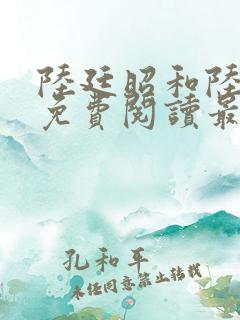 陸廷昭和陸
免費閱讀最
孔和平
未经同意禁止转载